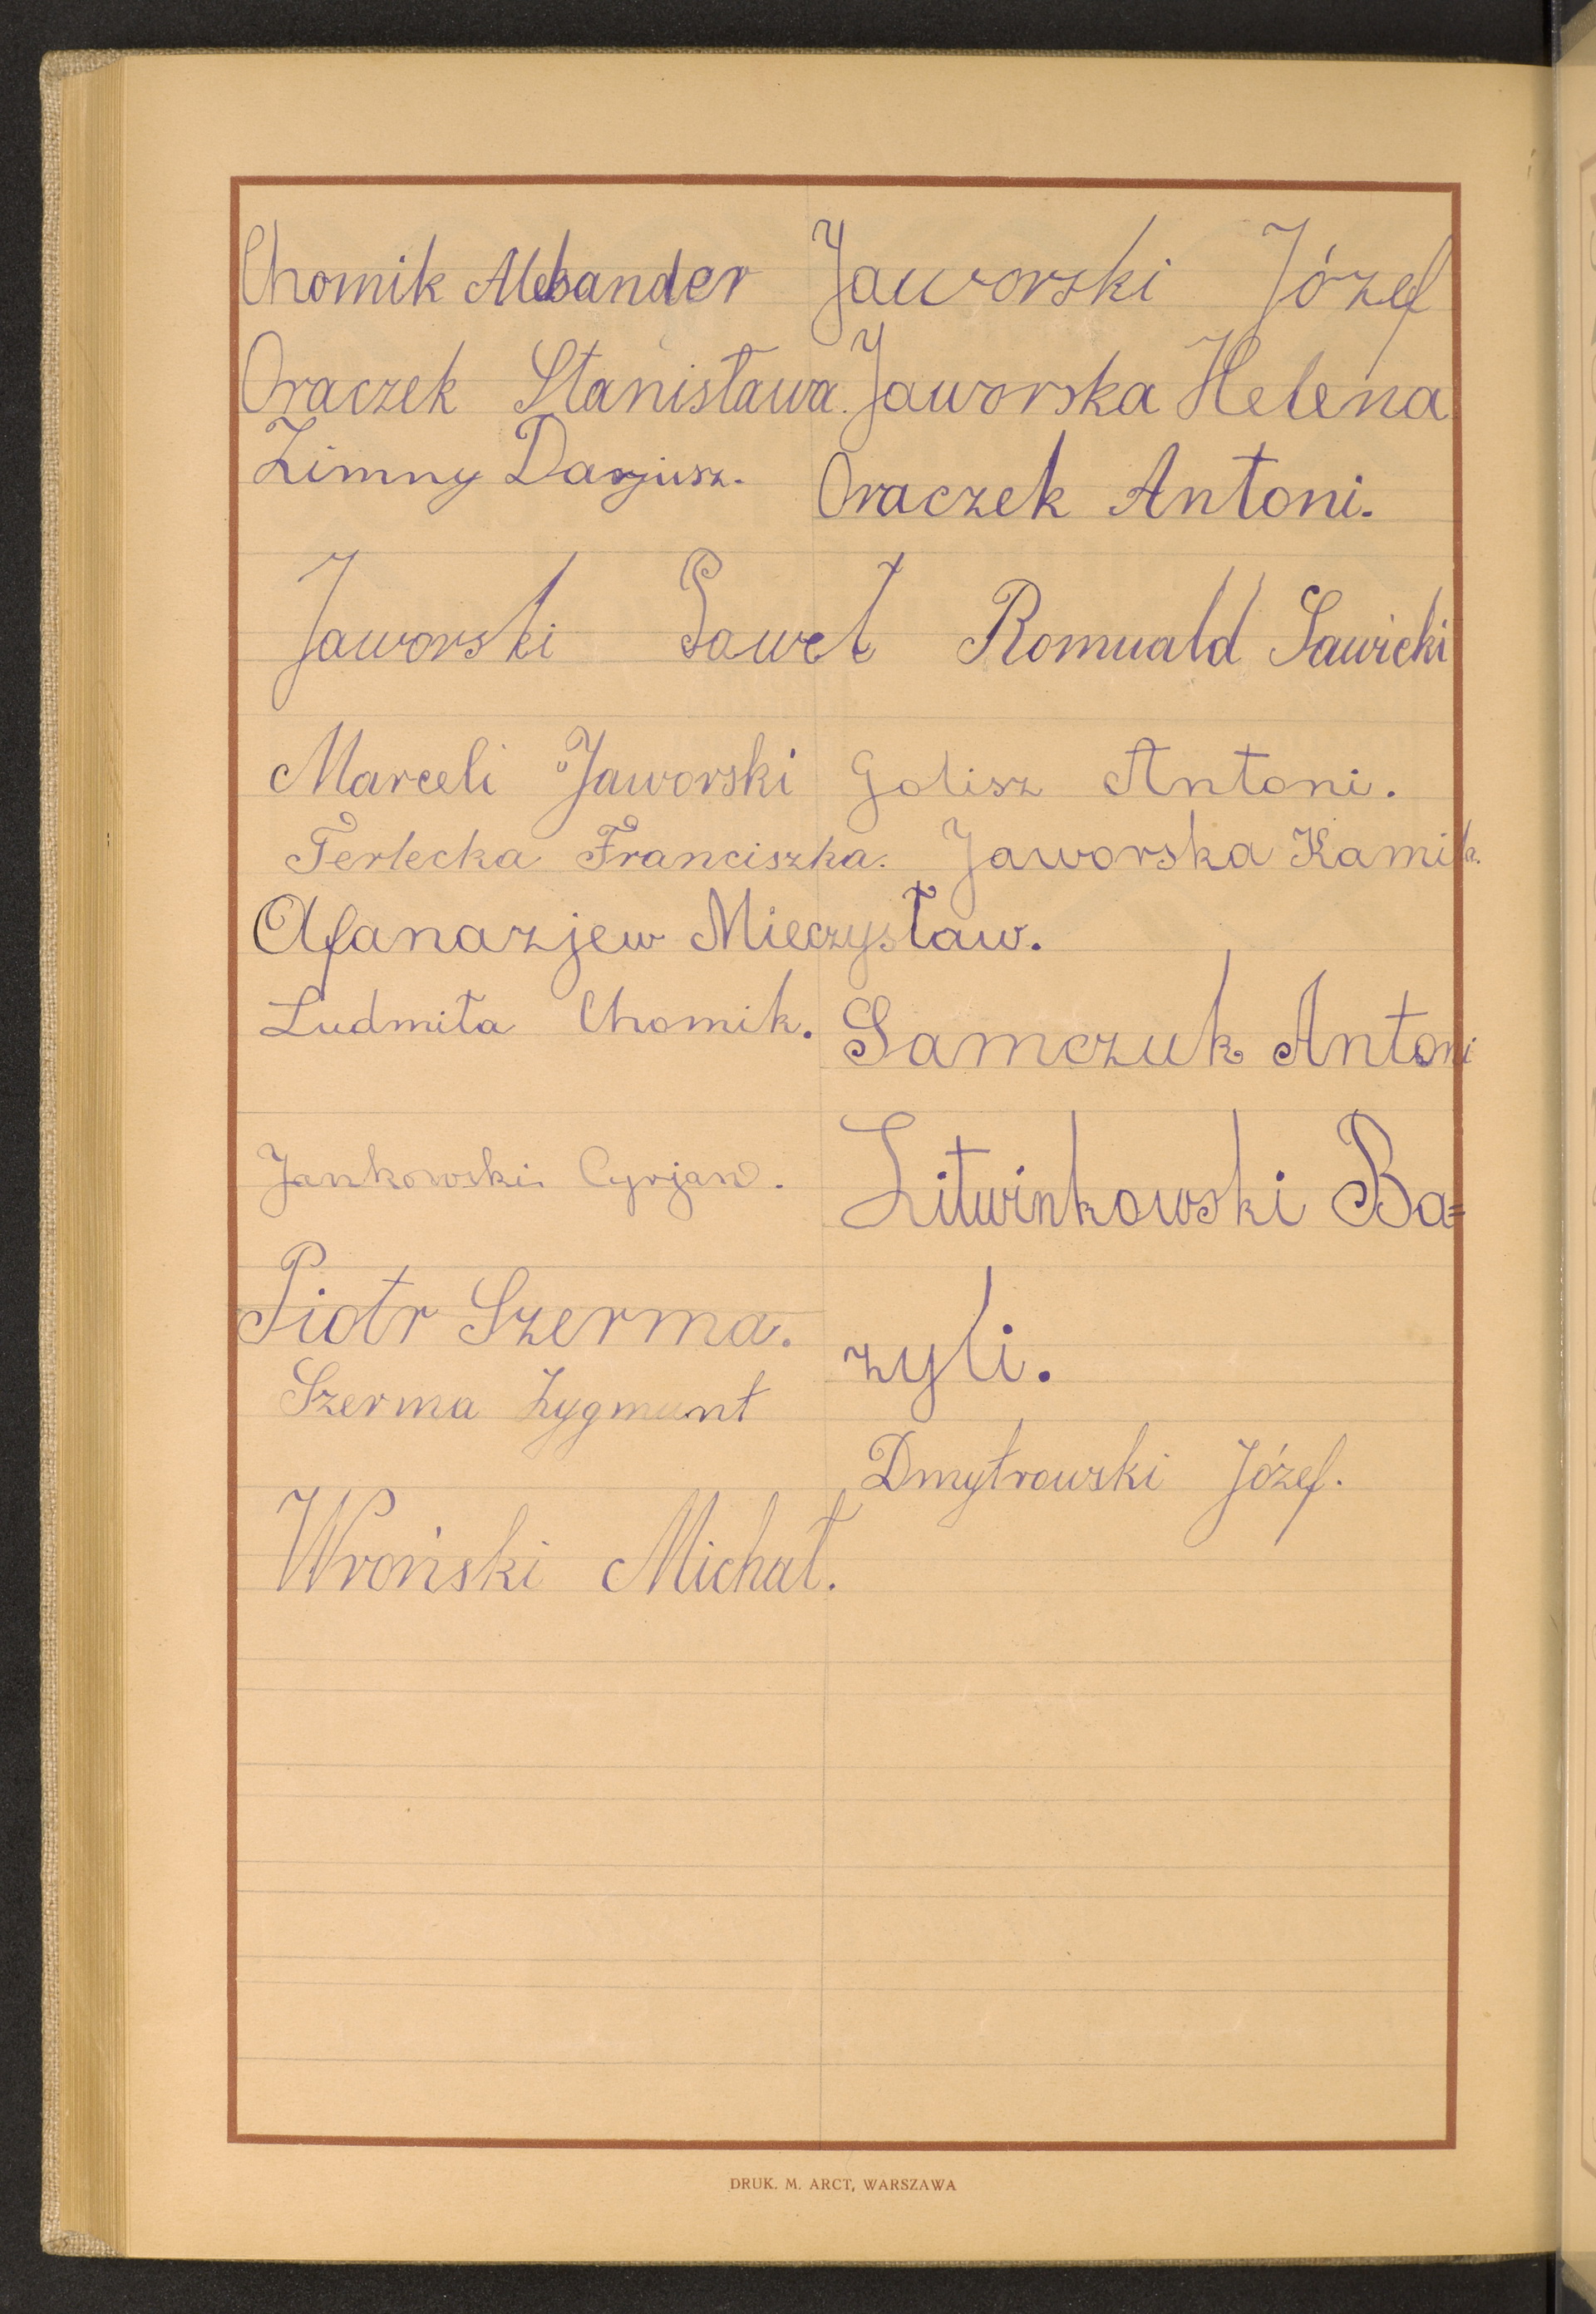 Chomik Aleksander Jaworski Józef
Oraczek Stanisława. Jaworska Helena
Zimny Darjusz. Oraczek Antoni.
Jaworski Paweł Romuald Sawicki
Marceli Jaworski Golisz Antoni.
Terlecka Franciszka. Jaworska Kamila.
Afanazjew Mieczysław.
Ludmiła Chomik. Samczuk Antoni
Jankowski Cyrjan. Litwinkowski Ba=
Piotr Szerma. zyli.
Szerma Zygmunt
Dmytrowski Józef.
Wroński Michał.
DRUK. M. ARCT, WARSZAWA